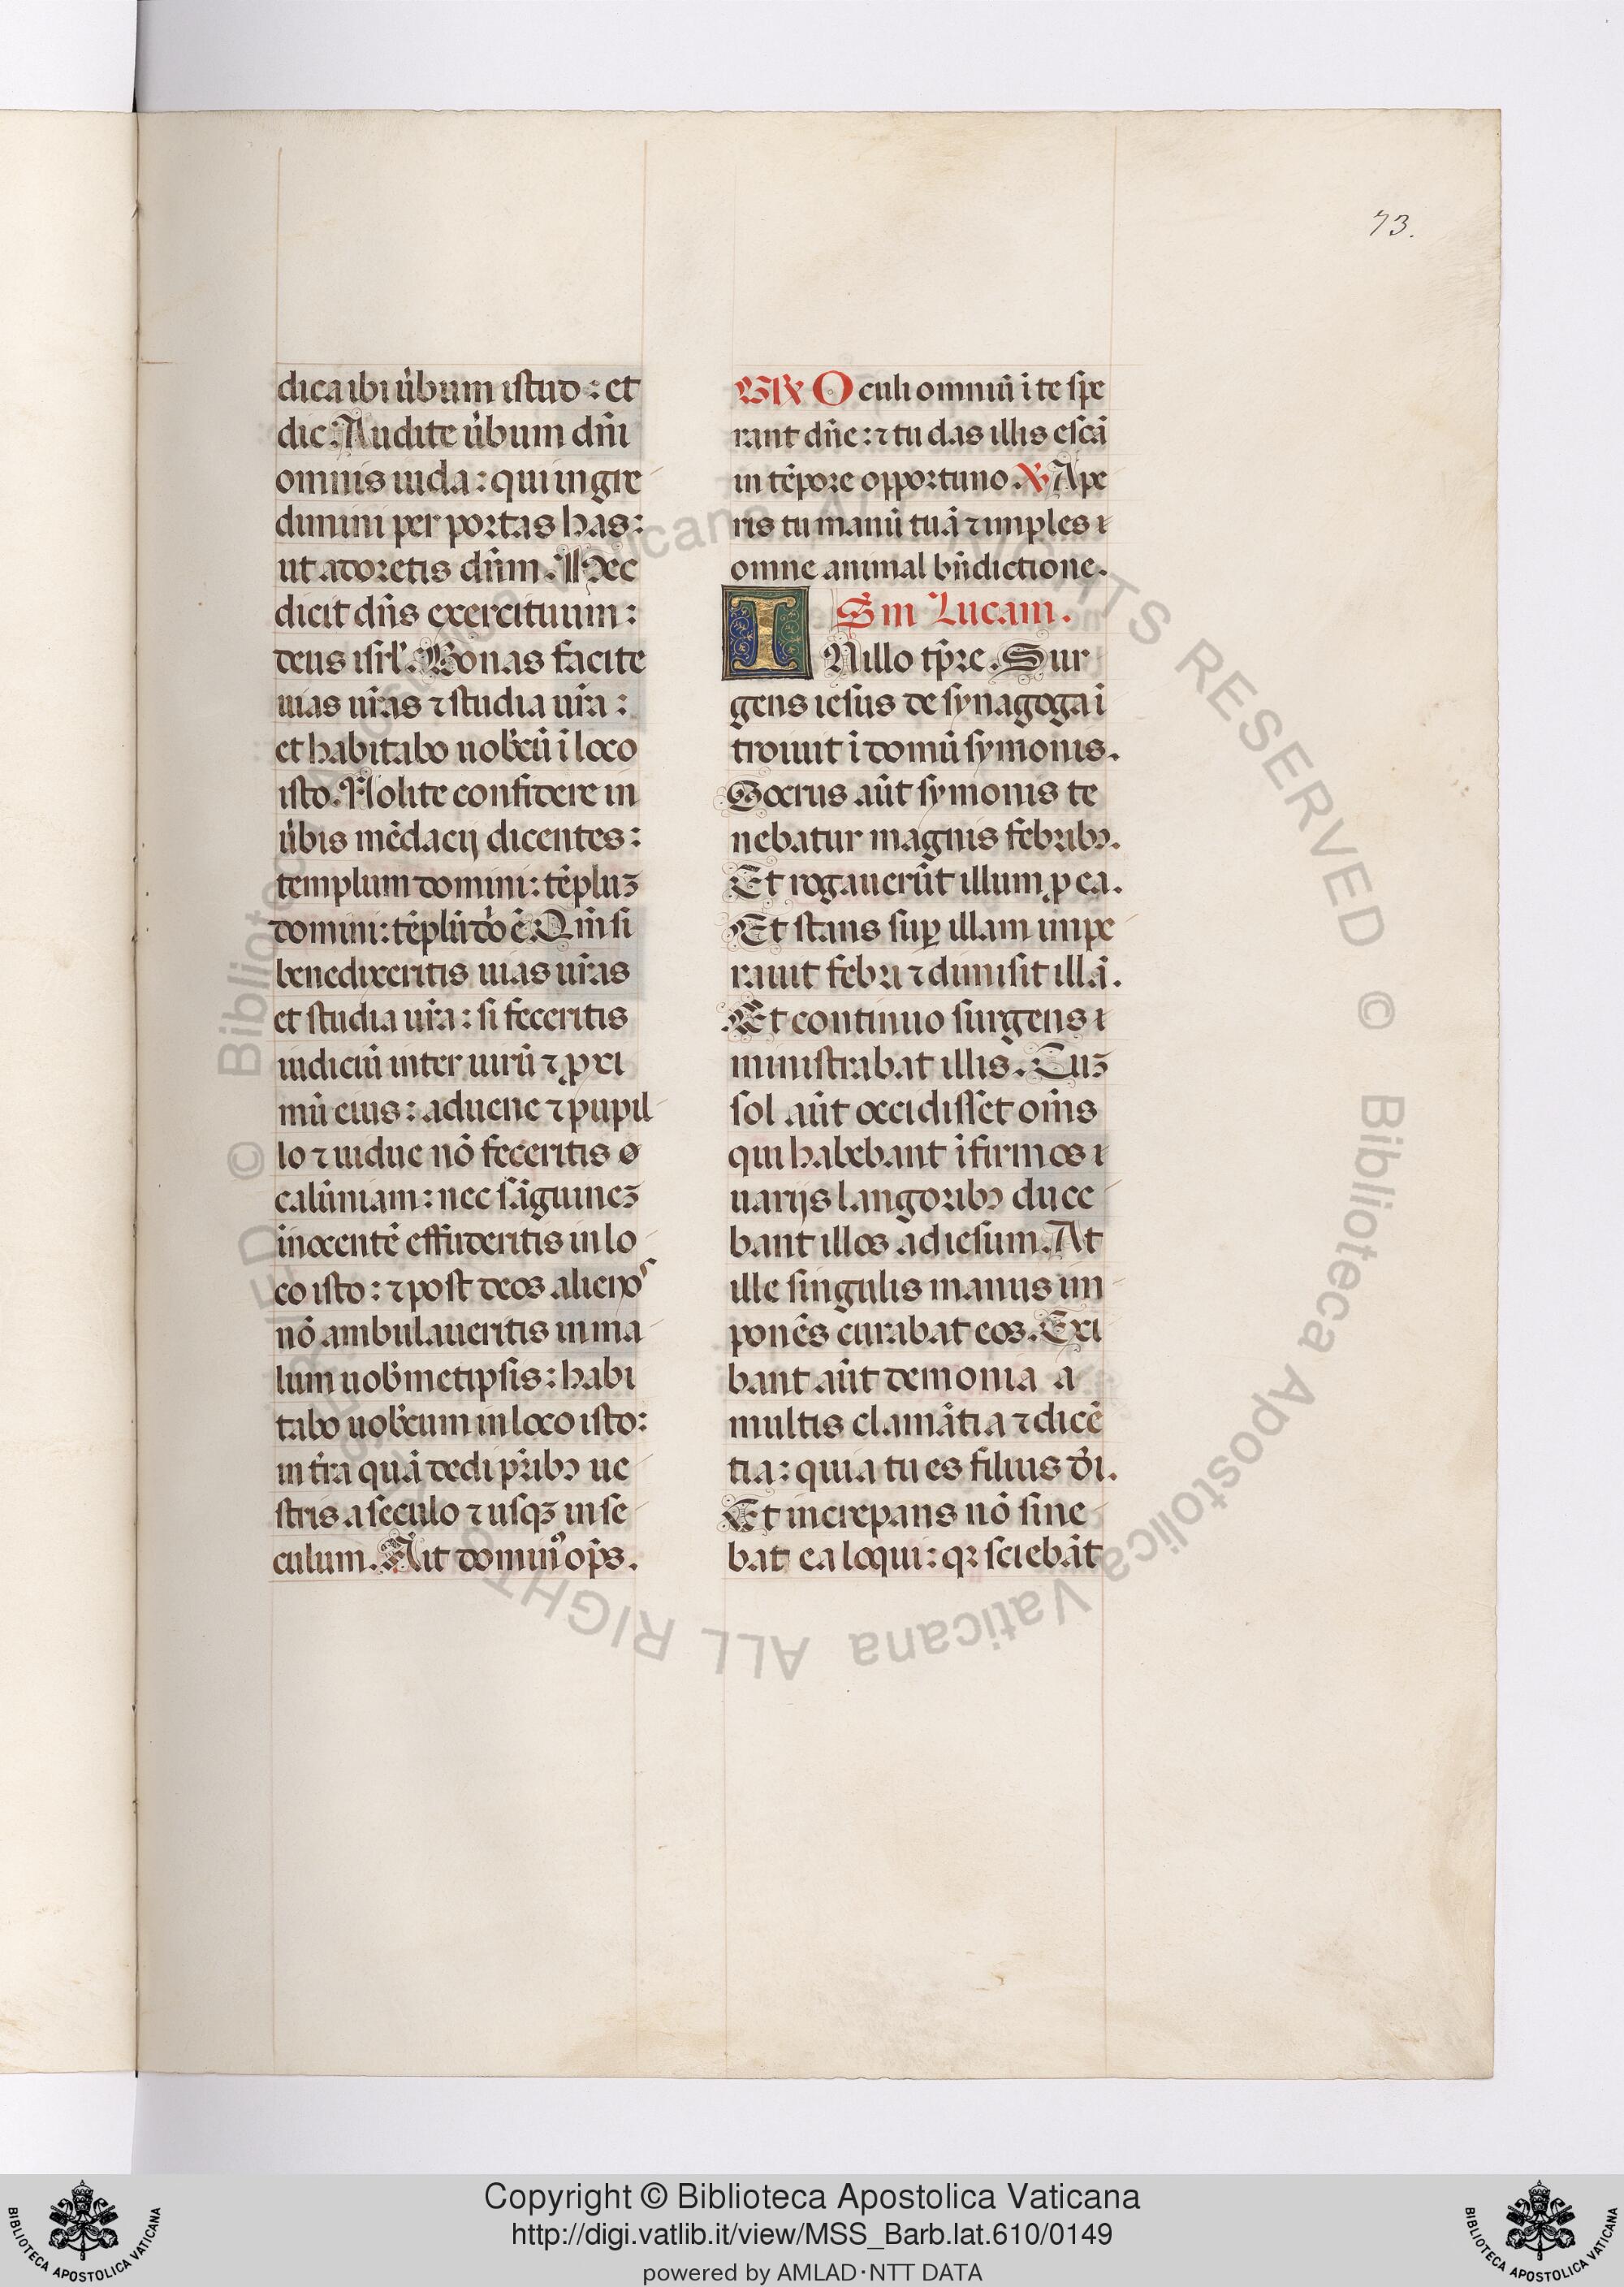 73.
dica ibi ūbum istud : et
dic. Audite ūbum dn̄i
omnis iuda : qui ingre
dimini per portas has :
ut adoretis dn̄m. Hec
dicit dn̄s exercituum :
deus isrl̄. Bonas facite
uias ur̄as ⁊ studia ur̄a :
et habitabo uob̄cū ī loco
isto. Nolite confidere in
ūbis mēdacij dicentes :
templum domini : tēpluꝫ
domini : tēplū dō ē. Qm̄ si
benedixeritis uias ur̄as
et studia ur̄a : si feceritis
iudiciū inter uirū ⁊ ꝓxi
mū eius : aduene ⁊ pupil
lo ⁊ uidue nō feceritis
calūniam : nec sāguineꝫ
īnocentē effuderitis in lo
co isto : ⁊ post deos alienos
nō ambulaueritis in ma
lum uob̄metipsis : habi
tabo uob̄cum in loco isto :
in tr̄a quā dedi pr̄ibꝫ ue
stris a seculo ⁊ usqꝫ in se
culum. Ait dominꝰ op̄s.
GR̄ Oculi omniū ī te spe
rant dn̄e : ⁊ tu das illis escā
in tēpore opportuno. ℣ Ape
ris tu manū tuā ⁊ imples
omne animal bn̄dictione.
Sm̄ Lucam.
INillo tp̄re. Sur
gens iesus de synagoga ī
trouiit ī domū symonis.
Socrus aūt symonis te
nebatur magnis febribꝫ.
Et rogauerūt illum ꝓ ea.
Et stans suꝑ illam impe
rauit febri ⁊ dimisit illā.
Et continuo surgens
ministrabat illis. Cuꝫ
sol aūt occidisset om̄s
qui habebant īfirmos
uarijs langoribꝫ duce
bant illos ad iesum. At
ille singulis manus im
ponēs curabat eos. Exi
bant aūt demonia a
multis clamātia ⁊ dicē
tia : quia tu es filius dī.
Et increpans nō sine
bat ea loqui : qꝛ sciebāt
© Biblioteca Apostolica Vaticana ALL RIGHTS RESERVED © Biblioteca Apostolica Vaticana ALL RIGHTS RESERVED
Copyright © Biblioteca Apostolica Vaticana
http://digi.vatlib.it/view/MSS_Barb.lat.610/0149
powered by AMLAD·NTT DATA
BIBLIOTECA APOSTOLICA VATICANA
BIBLIOTECA APOSTOLICA VATICANA